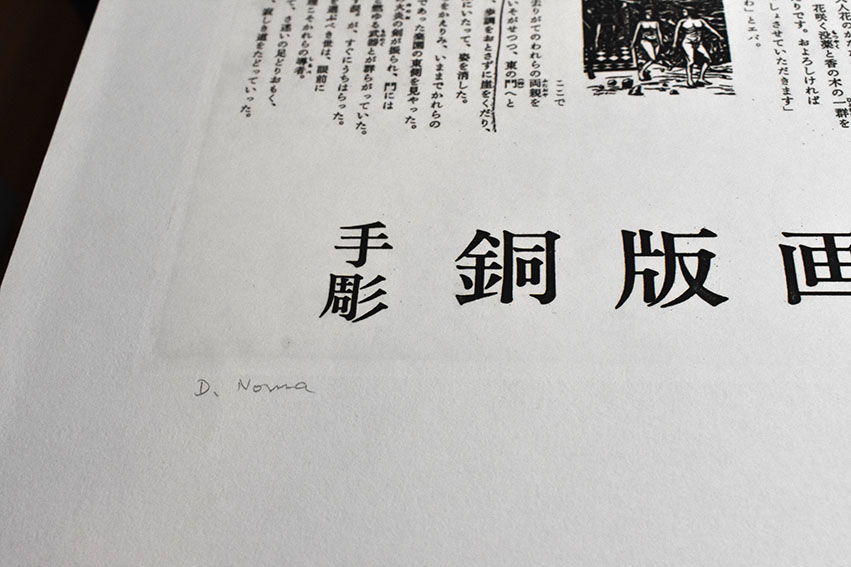 花咲く没薬と香の木の一群を
りです。およろしければ
しょさせていただきます」
わ」とエバ。
ここで
去りがてのわれらの両親を
いそがせつつ、東の門へと
歩調をおとさずに崖をくだり、
にいたって、姿を消した。
をかえりみ、いままでかれらの
であった楽園の東側を見やった。
の大炎の剣が振られ、門には
と燃ゆる武器とが群らがっていた。
が、すぐにうちはらった。
を選ぶべき世は、眼前に
理こそかれらの導者。
て、さ迷いの足どりおもく、
、哀しき道をたどっていった。
手彫 銅版画
D. Noma